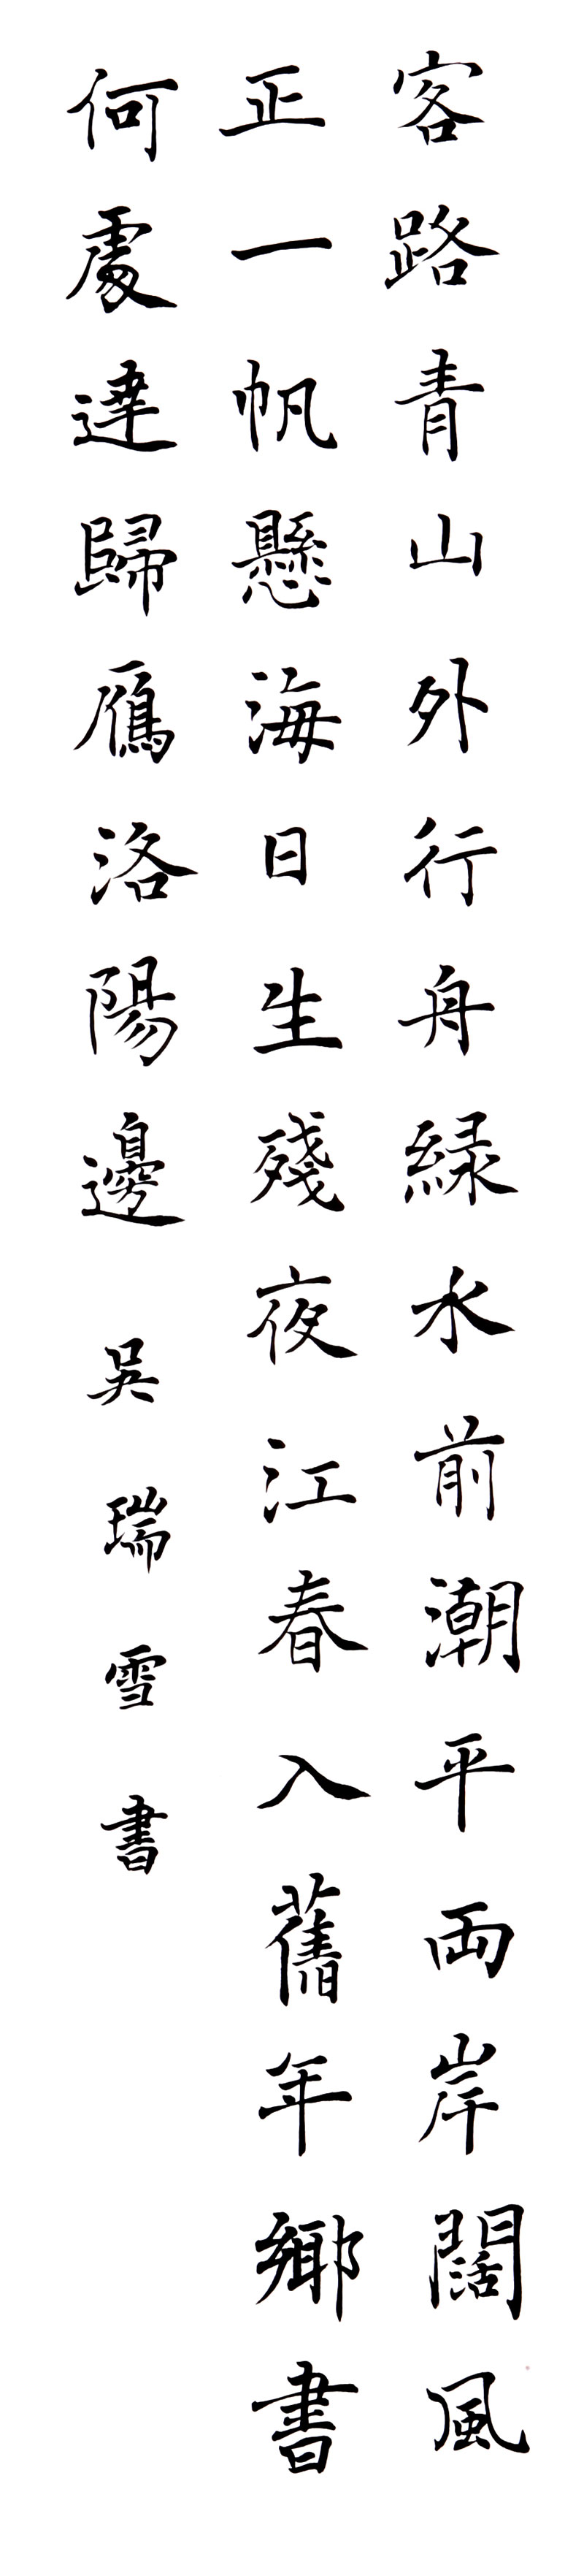 客路青山外行舟緑水前潮平両岸闊風
正一帆懸海日生殘夜江春入舊年鄉書
何處達歸鴈洛陽邊 吳瑞雪書